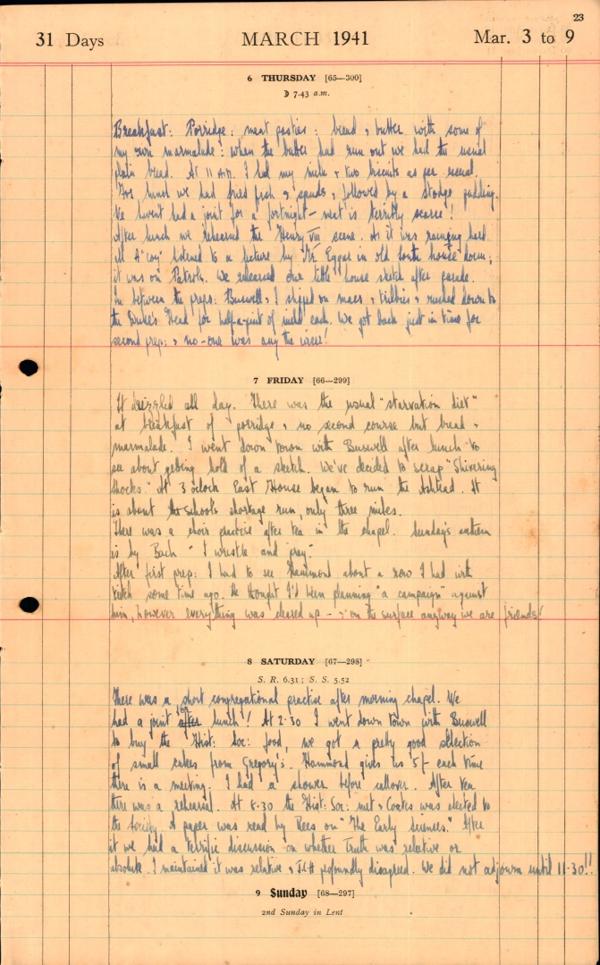 23
31 Days MARCH 1941 Mar. 3 to 9
6 THURSDAY [65—300]
☽ 7.43 a.m.
Breakfast: Porridge: meat pasties: bread & butter with some of
my own marmalade: when the butter had run out we had the usual
plain bread. At 11 A.M. I had my milk & two biscuits as per usual.
For lunch we had fried fish & spuds, followed by a stodge pudding.
We havent had a joint for a fortnight — meat is terribly scarce!
After lunch we rehearsed the Henry VIII scene. As it was raining hard
all A "coy" listened to a lecture by Mr. Eggar in old South house dorm;
it was on Patrols. We rehearsed our little house sketch after parade.
In between the preps: Buswell & I slipped on macs & trilbies & rushed down to
the Duke's Head for half-a-pint of mild each. We got back just in time for
second prep: & no-one was any the wiser!
7 FRIDAY [66—299]
It drizzled all day. There was the usual "starvation diet"
at breakfast of porridge & no second course but bread &
marmalade. I went down town with Buswell after lunch to
see about getting hold of a sketch. We've decided to scrap "Shivering
Shocks." At 3 oclock East House began to run the Ashtead. It
is about the schools shortage run, only three miles.
There was a choir practice after tea in the chapel. Sunday's anthem
is by Bach "I wrestle and pray".
After first prep: I had to see Hammond about a row I had with
some time ago. He thought I'd been planning "a campaign" against
him, however everything was cleared up — & on the surface anyway we are friends!
8 SATURDAY [67—298]
S. R. 6.31; S. S. 5.52
There was a short congregational practice after morning chapel. We
had a joint for lunch!! At 2.30 I went down town with Buswell
to buy the Hist: Soc: food, we got a pretty good selection
of small cakes from Gregory's. Hammond gives us 5/- each time
there is a meeting. I had a shower before callover. After tea
there was a rehearsal. At 8.30 the Hist: Soc: met & Coates was elected to
the Society. A paper was read by Rees on "The Early Sciences." After
it we had a terrific discussion on whether Truth was relative or
absolute. I maintained it was relative & profoundly disagreed. We did not adjourn until 11.30!!
9 Sunday [68—297]
2nd Sunday in Lent